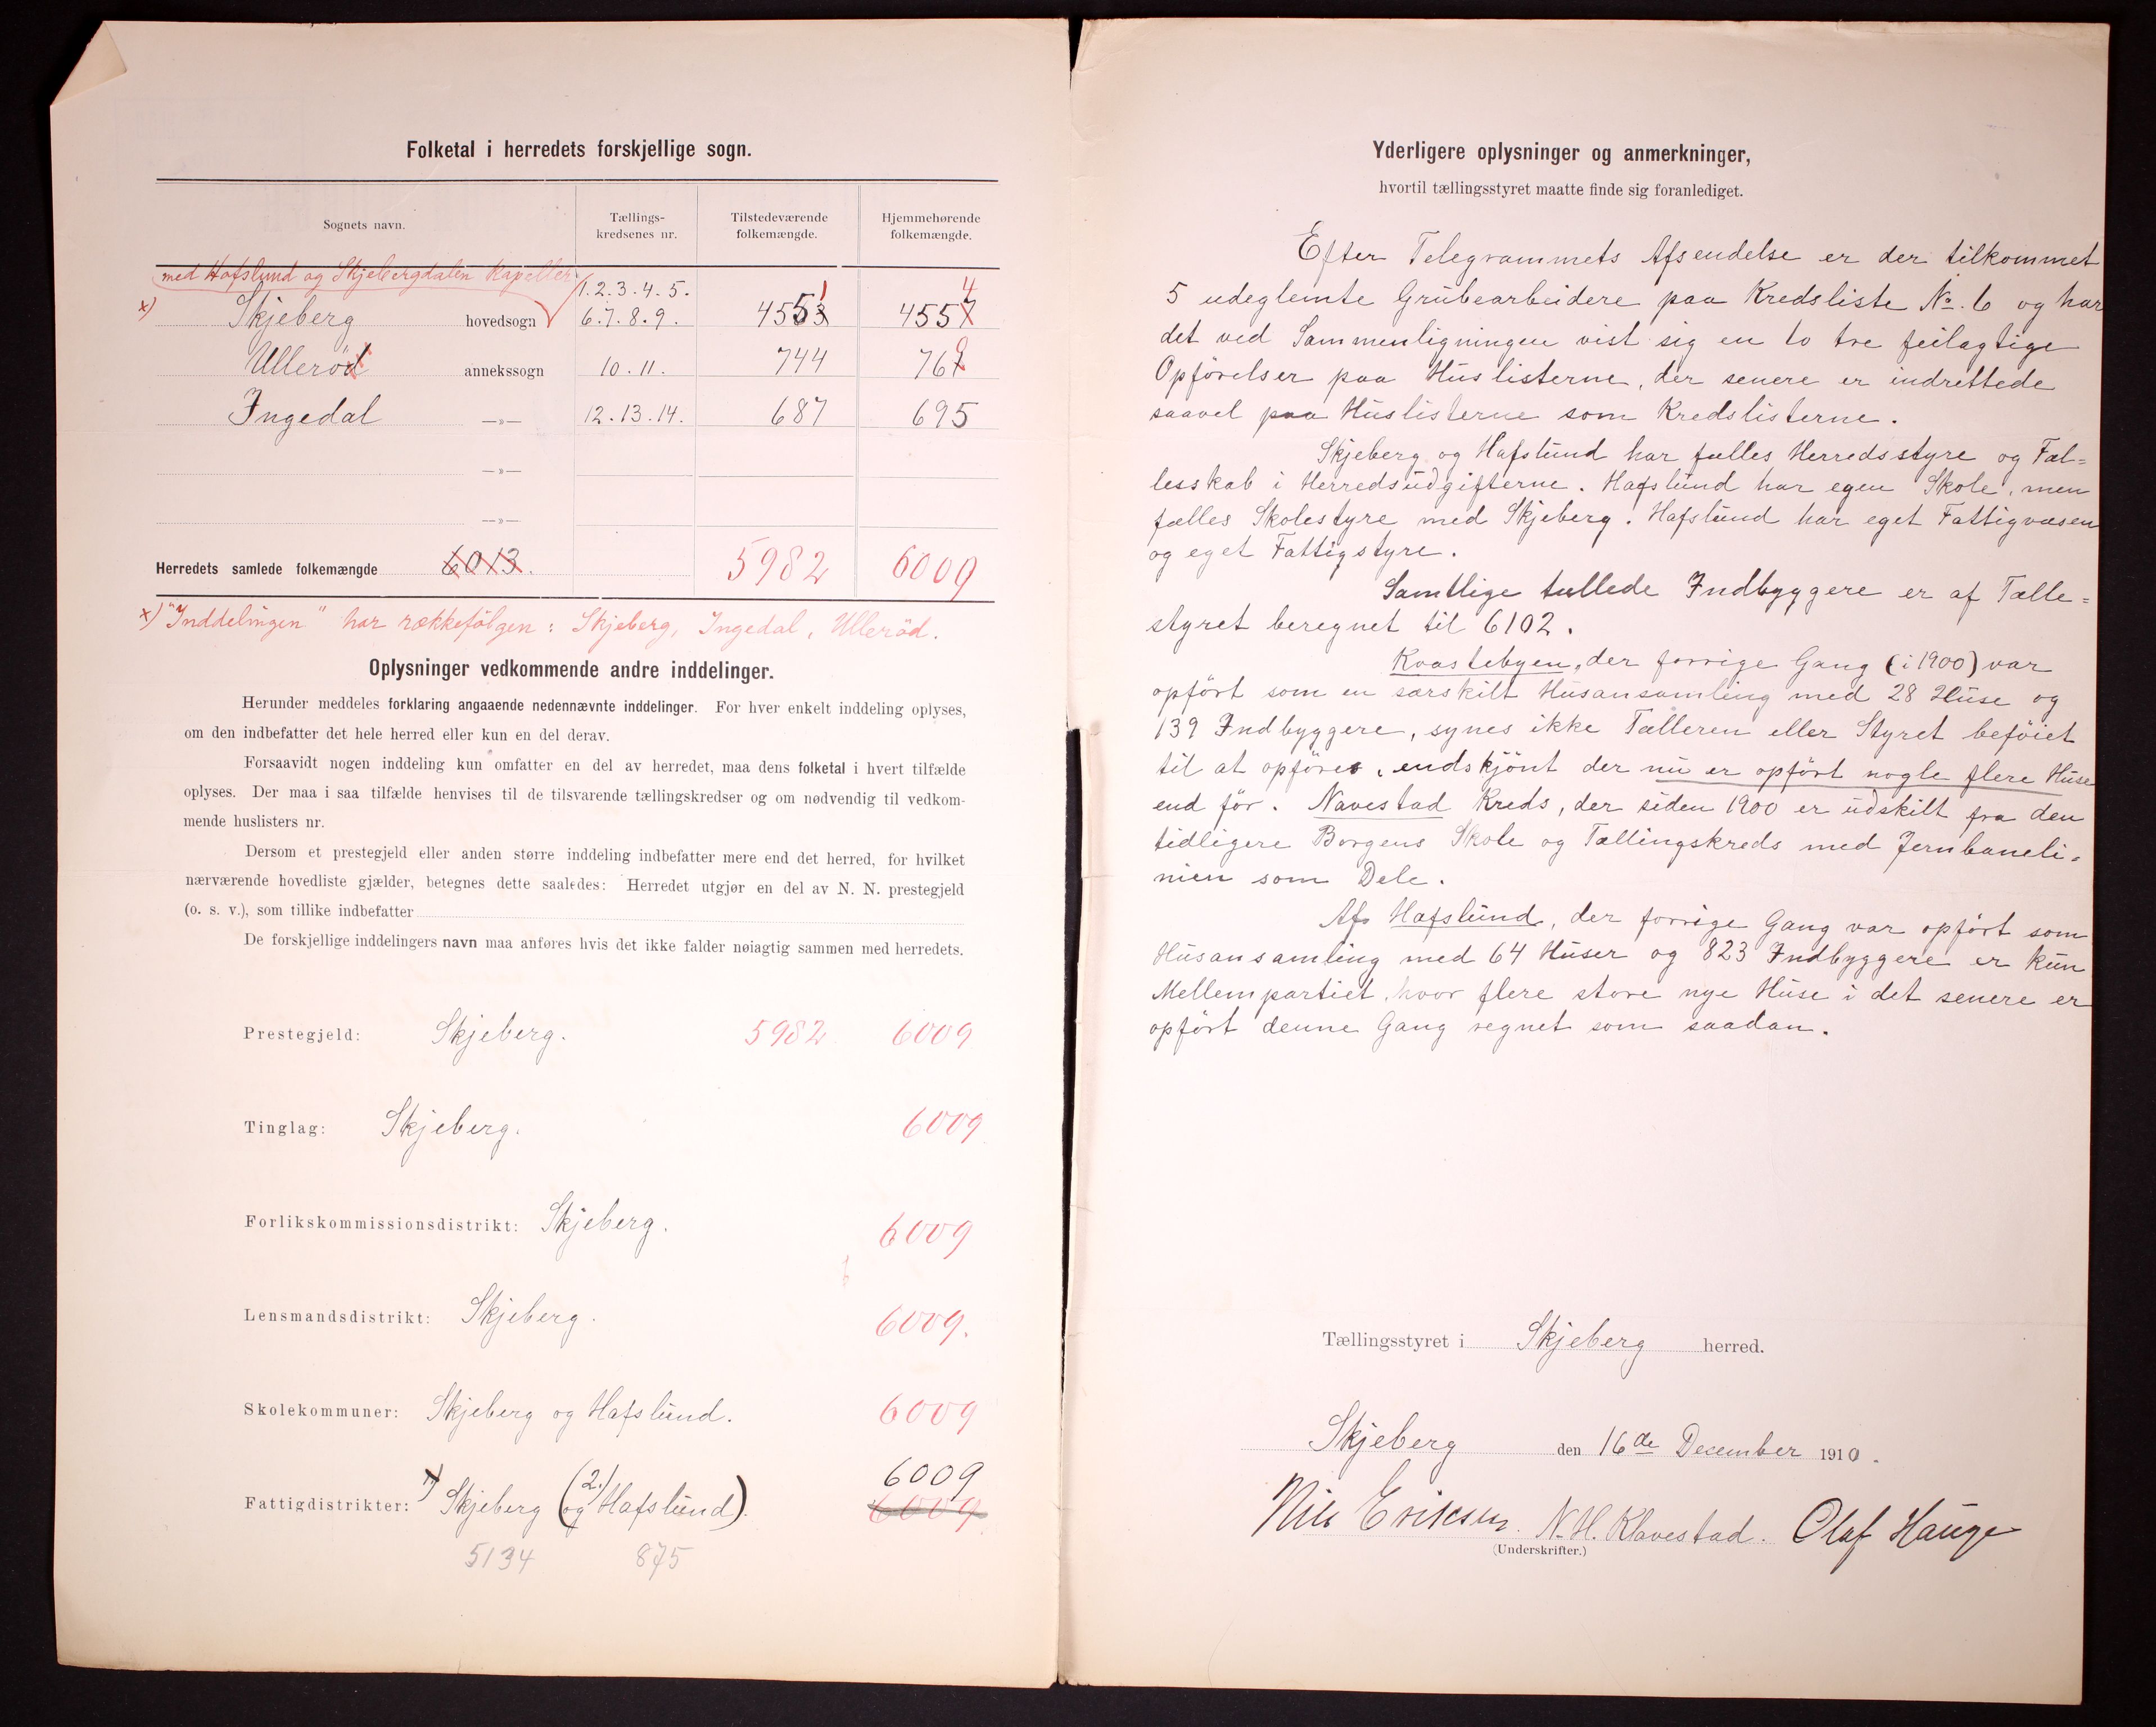 Folketal i herredets forskjellige sogn.
Sognets navn.
Tællings-
kredsenes nr.
Tilstedeværende
folkemængde.
Hjemmehørende
folkemængde.
med Hafslund og Skjebergdalen kapeller
1.2.3.4.5.
x) Skjeberg hovedsogn 6.7.8.9. 4553 1 4557 4
Ullerød annekssogn 10.11. 744 767 0
Ingedal —»— 12.13.14. 687 695
—»—
—»—
Herredets samlede folkemængde 6013. 5982 6009
x) "Inddelingen" har rækkefölgen: Skjeberg, Ingedal, Ulleröd.
Oplysninger vedkommende andre inddelinger.
Herunder meddeles forklaring angaaende nedennævnte inddelinger. For hver enkelt inddeling oplyses,
om den indbefatter det hele herred eller kun en del derav.
Forsaavidt nogen inddeling kun omfatter en del av herredet, maa dens folketal i hvert tilfælde
oplyses. Der maa i saa tilfælde henvises til de tilsvarende tællingskredser og om nødvendig til vedkom-
mende huslisters nr.
Dersom et prestegjeld eller anden større inddeling indbefatter mere end det herred, for hvilket
nærværende hovedliste gjælder, betegnes dette saaledes: Herredet utgjør en del av N. N. prestegjeld
(o. s. v.), som tillike indbefatter
De forskjellige inddelingers navn maa anføres hvis det ikke falder nøiagtig sammen med herredets.
Prestegjeld: Skjeberg. 5982 6009
Tinglag: Skjeberg. 6009
Forlikskommissionsdistrikt: Skjeberg. 6009
Lensmandsdistrikt: Skjeberg. 6009.
Skolekommuner: Skjeberg og Hafslund. 6009
6009
Fattigdistrikter: 1) Skjeberg (og 2.) Hafslund). 6009
5134 875
Yderligere oplysninger og anmerkninger,
hvortil tællingsstyret maatte finde sig foranlediget.
Efter Telegrammets Afsendelse er der tilkommet
5 udeglemte Grubearbeidere paa Kredsliste No. 6 og har
det ved Sammenligningen vist sig en to tre feilagtige
Opförelser paa Huslisterne, der senere er indrettede
saavel paa Huslisterne som Kredslisterne.
Skjeberg og Hafslund har fælles Herredsstyre og Fæl=
lesskab i Herredsudgifterne. Hafslund har egen Skole, men
fælles Skolestyre med Skjeberg. Hafslund har eget Fattigvæsen
og eget Fattigstyre.
Samtlige tællede Indbyggere er af Tælle=
styret beregnet til 6102.
Kvastebyen, der forrige Gang (i 1900) var
opfört som en særskilt Husansamling med 28 Huse og
139 Indbyggere, synes ikke Tælleren eller Styret beföiet
til at opföres, endskjönt der nu er opfört nogle flere Huse
end för. Navestad Kreds, der siden 1900 er udskilt fra den
tidligere Borgens Skole og Tællingskreds med Jernbaneli=
nien som Dele.
Af Hafslund, der forrige Gang var opfört som
Husansamling med 64 Huser og 823 Indbyggere er kun
Mellempartiet, hvor flere store nye Huse i det senere er
opfört denne Gang regnet som saadan.
Tællingsstyret i Skjeberg herred.
Skjeberg den 16de December 1910.
Nils Eriksen. N. H. Klavestad. Olaf Hauge
(Underskrifter.)